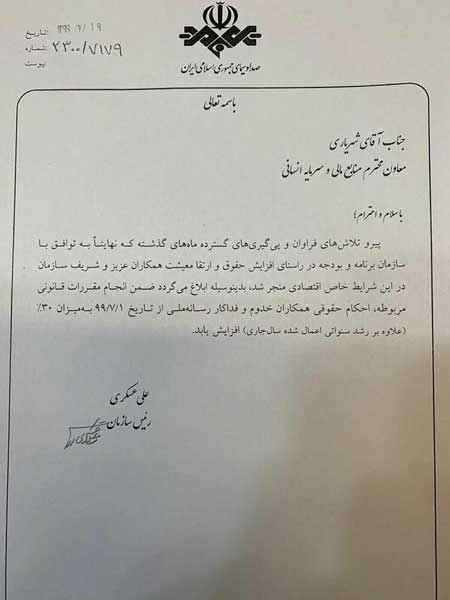 تاریخ: ۱۳۹۹/۷/۱۹
شماره: ۲۳۰۰/۷۱۷۹
پیوست:
صداوسیمای جمهوری اسلامی ایران
باسمه تعالی
جناب آقای شهریاری
معاون محترم منابع مالی و سرمایه انسانی
باسلام و احترام؛
پیرو تلاش‌های فراوان و پی‌گیری‌های گسترده ماه‌های گذشته که نهایتاً به توافق با
سازمان برنامه و بودجه در راستای افزایش حقوق و ارتقا معیشت همکاران عزیز و شریف سازمان
در این شرایط خاص اقتصادی منجر شد، بدینوسیله ابلاغ می‌گردد ضمن انجام مقررات قانونی
مربوطه، احکام حقوقی همکاران خدوم و فداکار رسانه‌ملی از تاریخ ۹۹/۷/۱ به‌میزان ۳۰٪
(علاوه بر رشد سنواتی اعمال شده سال‌جاری) افزایش یابد.
علی عسکری
رئیس سازمان